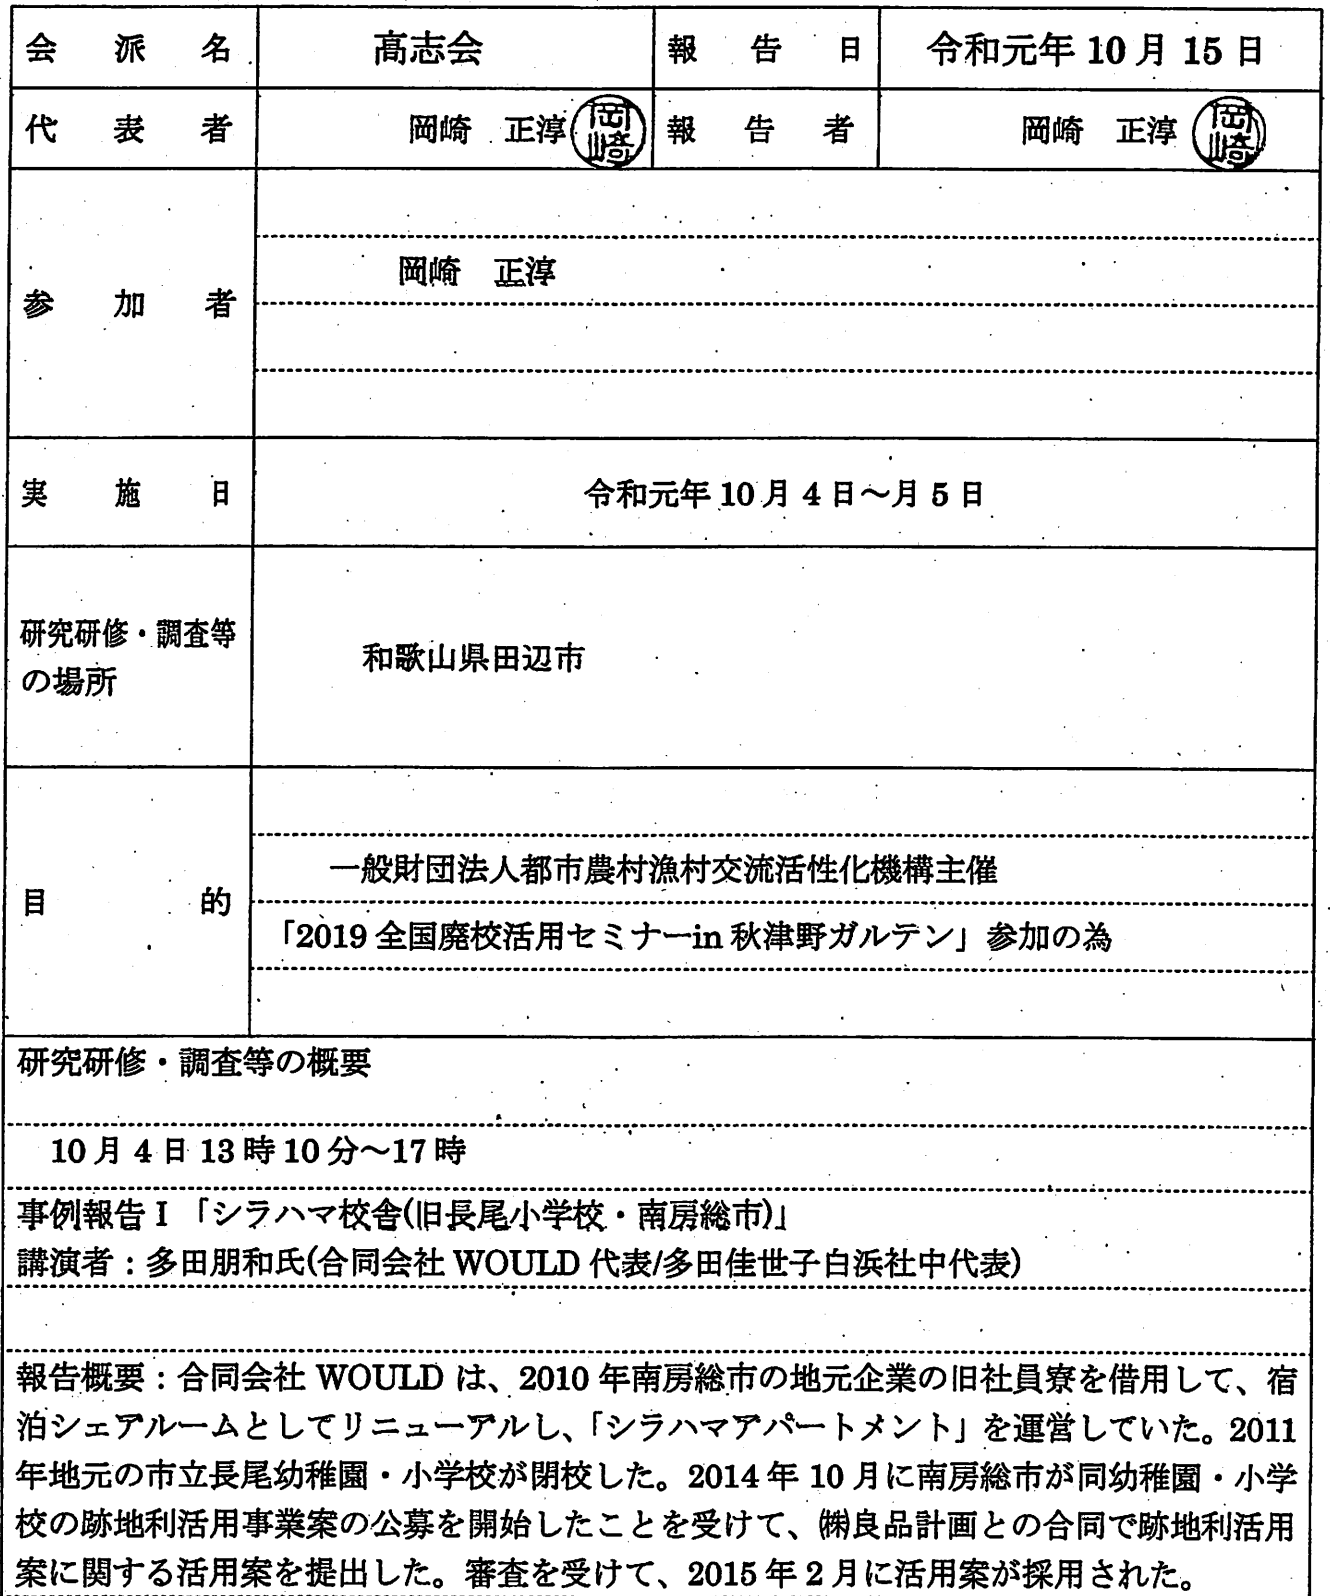 会派名 髙志会 報告日 令和元年10月15日
代表者 岡崎 正淳 岡崎 報告者 岡崎 正淳 岡崎
参加者 岡崎 正淳
実施日 令和元年10月4日～月5日
研究研修・調査等
の場所
和歌山県田辺市
目的
一般財団法人都市農村漁村交流活性化機構主催
「2019全国廃校活用セミナーin秋津野ガルテン」参加の為
研究研修・調査等の概要
10月4日13時10分～17時
事例報告Ⅰ「シラハマ校舎(旧長尾小学校・南房総市)」
講演者：多田朋和氏(合同会社WOULD代表/多田佳世子白浜社中代表)
報告概要：合同会社WOULDは、2010年南房総市の地元企業の旧社員寮を借用して、宿
泊シェアルームとしてリニューアルし、「シラハマアパートメント」を運営していた。2011
年地元の市立長尾幼稚園・小学校が閉校した。2014年10月に南房総市が同幼稚園・小学
校の跡地利活用事業案の公募を開始したことを受けて、㈱良品計画との合同で跡地利活用
案に関する活用案を提出した。審査を受けて、2015年2月に活用案が採用された。